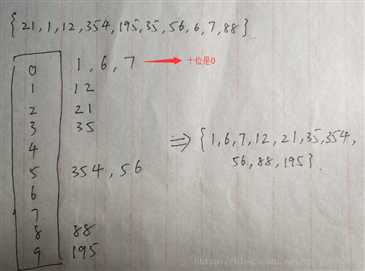 {21,1,12,354,195,35,56,6,7,88}
0 1,6,7 十位是0
1 12
2 21
3 35
4
5 354,56
6
7
8 88
9 195
⇒ {1,6,7,12,21,35,354,
56,88,195}